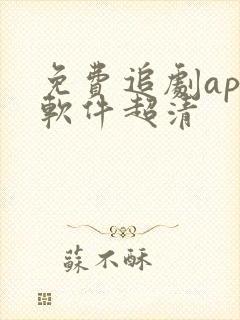 免費追劇ap
軟件超清
蘇不酥